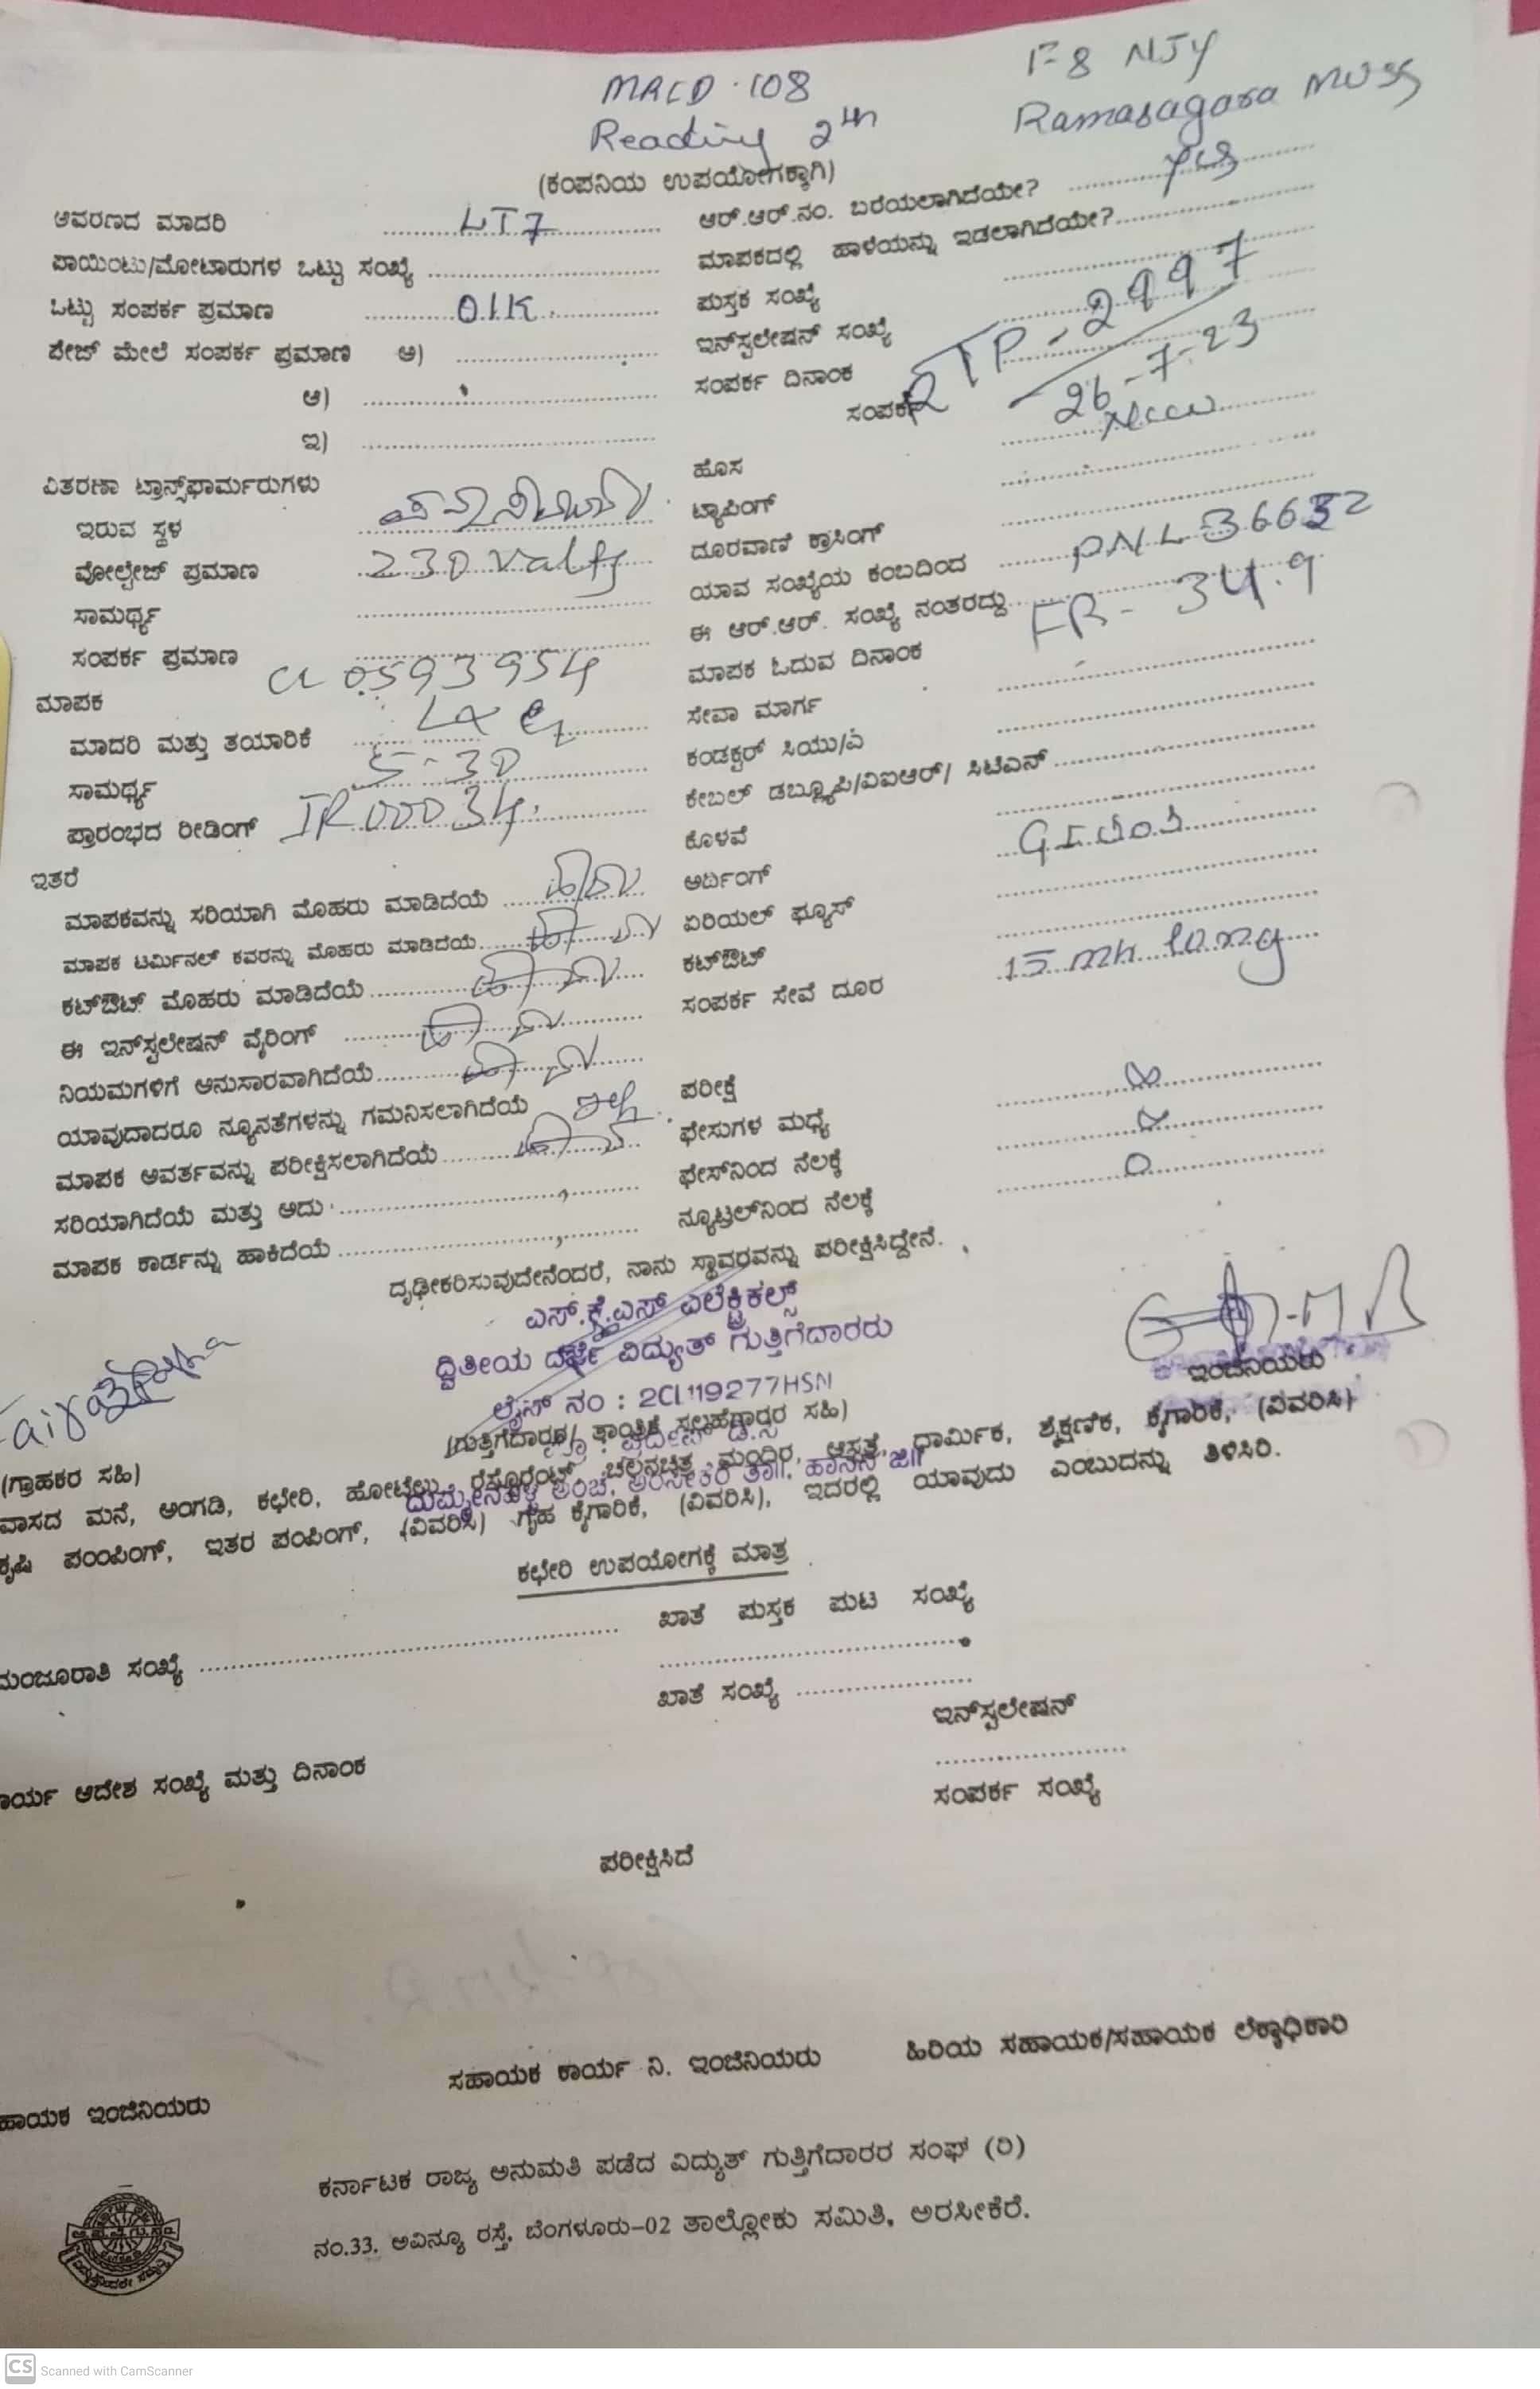 MRCD.108
F-8 NJY
Reading 2th
Ramasagara MUSS
(ಕಂಪನಿಯ ಉಪಯೋಗಕ್ಕಾಗಿ)
ಆವರಣದ ಮಾದರಿ LT7 ಆರ್.ಆರ್.ನಂ. ಬರೆಯಲಾಗಿದೆಯೇ? yes
ಪಾಯಿಂಟು/ಮೋಟಾರುಗಳ ಒಟ್ಟು ಸಂಖ್ಯೆ ಮಾಪಕದಲ್ಲಿ ಹಾಳೆಯನ್ನು ಇಡಲಾಗಿದೆಯೇ?
ಒಟ್ಟು ಸಂಪರ್ಕ ಪ್ರಮಾಣ 01K ಪುಸ್ತಕ ಸಂಖ್ಯೆ
ಪೇಜ್ ಮೇಲೆ ಸಂಪರ್ಕ ಪ್ರಮಾಣ ಅ) ಇನ್‌ಸ್ಟಲೇಷನ್ ಸಂಖ್ಯೆ RTP-2997
ಆ) ಸಂಪರ್ಕ ದಿನಾಂಕ 26-7-23
ಇ) ಸಂಪರ್ಕ
ವಿತರಣಾ ಟ್ರಾನ್ಸ್‌ಫಾರ್ಮರುಗಳು ಹೊಸ
ಇರುವ ಸ್ಥಳ ಟ್ಯಾಪಿಂಗ್
ವೋಲ್ಟೇಜ್ ಪ್ರಮಾಣ 230 ದೂರವಾಣಿ ಕ್ರಾಸಿಂಗ್
ಸಾಮರ್ಥ್ಯ ಯಾವ ಸಂಖ್ಯೆಯ ಕಂಬದಿಂದ PNL 36632
ಸಂಪರ್ಕ ಪ್ರಮಾಣ ಈ ಆರ್.ಆರ್. ಸಂಖ್ಯೆ ನಂತರದ್ದು FR- 34.9
ಮಾಪಕ 05939954 ಮಾಪಕ ಓದುವ ದಿನಾಂಕ
ಮಾದರಿ ಮತ್ತು ತಯಾರಿಕೆ ಸೇವಾ ಮಾರ್ಗ
ಸಾಮರ್ಥ್ಯ 5-30 ಕಂಡಕ್ಟರ್ ಸಿಯು/ಎ
ಪ್ರಾರಂಭದ ರೀಡಿಂಗ್ IR00034 ಕೇಬಲ್ ಡಬ್ಲ್ಯೂಪಿ/ವಿಐಆರ್/ ಸಿಟಿಎನ್
ಇತರೆ ಕೊಳವೆ
ಮಾಪಕವನ್ನು ಸರಿಯಾಗಿ ಮೊಹರು ಮಾಡಿದೆಯೆ ಅರ್ಥಿಂಗ್
ಮಾಪಕ ಟರ್ಮಿನಲ್ ಕವರನ್ನು ಮೊಹರು ಮಾಡಿದೆಯೆ ಏರಿಯಲ್ ಫ್ಯೂಸ್
ಕಟ್‌ಔಟ್ ಮೊಹರು ಮಾಡಿದೆಯೆ ಕಟ್‌ಔಟ್
ಈ ಇನ್‌ಸ್ಟಲೇಷನ್ ವೈರಿಂಗ್ ಸಂಪರ್ಕ ಸೇವೆ ದೂರ 15 mtr long
ನಿಯಮಗಳಿಗೆ ಅನುಸಾರವಾಗಿದೆಯೆ
ಯಾವುದಾದರೂ ನ್ಯೂನತೆಗಳನ್ನು ಗಮನಿಸಲಾಗಿದೆಯೆ ಪರೀಕ್ಷೆ
ಮಾಪಕ ಆವರ್ತವನ್ನು ಪರೀಕ್ಷಿಸಲಾಗಿದೆಯೆ ಫೇಸುಗಳ ಮಧ್ಯೆ
ಸರಿಯಾಗಿದೆಯೆ ಮತ್ತು ಅದು ಫೇಸ್‌ನಿಂದ ನೆಲಕ್ಕೆ
ಮಾಪಕ ಕಾರ್ಡನ್ನು ಹಾಕಿದೆಯೆ ನ್ಯೂಟ್ರಲ್‌ನಿಂದ ನೆಲಕ್ಕೆ
ದೃಢೀಕರಿಸುವುದೇನೆಂದರೆ, ನಾನು ಸ್ಥಾವರವನ್ನು ಪರೀಕ್ಷಿಸಿದ್ದೇನೆ.
ಎಸ್.ಕೆ.ಎಸ್ ಎಲೆಕ್ಟ್ರಿಕಲ್ಸ್
ದ್ವಿತೀಯ ದರ್ಜೆ ವಿದ್ಯುತ್ ಗುತ್ತಿಗೆದಾರರು
ಲೈಸೆನ್ಸ್ ನಂ : 2CL119277HSN
ಇಂಜಿನಿಯರು
(ಗ್ರಾಹಕರ ಸಹಿ) (ಗುತ್ತಿಗೆದಾರರ/ ತಾಂತ್ರಿಕ ಸಲಹೆಗಾರರ ಸಹಿ)
ವಾಸದ ಮನೆ, ಅಂಗಡಿ, ಕಛೇರಿ, ಹೋಟೆಲು, ರೆಸ್ಟೋರೆಂಟ್, ಚಲನಚಿತ್ರ ಮಂದಿರ, ಆಸ್ಪತ್ರೆ, ಧಾರ್ಮಿಕ, ಶೈಕ್ಷಣಿಕ, ಕೈಗಾರಿಕೆ, (ವಿವರಿಸಿ)
ಕೃಷಿ ಪಂಪಿಂಗ್, ಇತರ ಪಂಪಿಂಗ್, (ವಿವರಿಸಿ) ಗೃಹ ಕೈಗಾರಿಕೆ, (ವಿವರಿಸಿ), ಇದರಲ್ಲಿ ಯಾವುದು ಎಂಬುದನ್ನು ತಿಳಿಸಿರಿ.
ಕಛೇರಿ ಉಪಯೋಗಕ್ಕೆ ಮಾತ್ರ
ಖಾತೆ ಪುಸ್ತಕ ಪುಟ ಸಂಖ್ಯೆ
ಮಂಜೂರಾತಿ ಸಂಖ್ಯೆ
ಖಾತೆ ಸಂಖ್ಯೆ
ಇನ್‌ಸ್ಟಲೇಷನ್
ಕಾರ್ಯ ಆದೇಶ ಸಂಖ್ಯೆ ಮತ್ತು ದಿನಾಂಕ
ಸಂಪರ್ಕ ಸಂಖ್ಯೆ
ಪರೀಕ್ಷಿಸಿದೆ
ಹಾಯಕ ಇಂಜಿನಿಯರು ಸಹಾಯಕ ಕಾರ್ಯ ನಿ. ಇಂಜಿನಿಯರು ಹಿರಿಯ ಸಹಾಯಕ/ಸಹಾಯಕ ಲೆಕ್ಕಾಧಿಕಾರಿ
ಕರ್ನಾಟಕ ರಾಜ್ಯ ಅನುಮತಿ ಪಡೆದ ವಿದ್ಯುತ್ ಗುತ್ತಿಗೆದಾರರ ಸಂಘ (ರಿ)
ನಂ.33, ಅವಿನ್ಯೂ ರಸ್ತೆ, ಬೆಂಗಳೂರು-02 ತಾಲ್ಲೋಕು ಸಮಿತಿ, ಅರಸೀಕೆರೆ.
CS Scanned with CamScanner